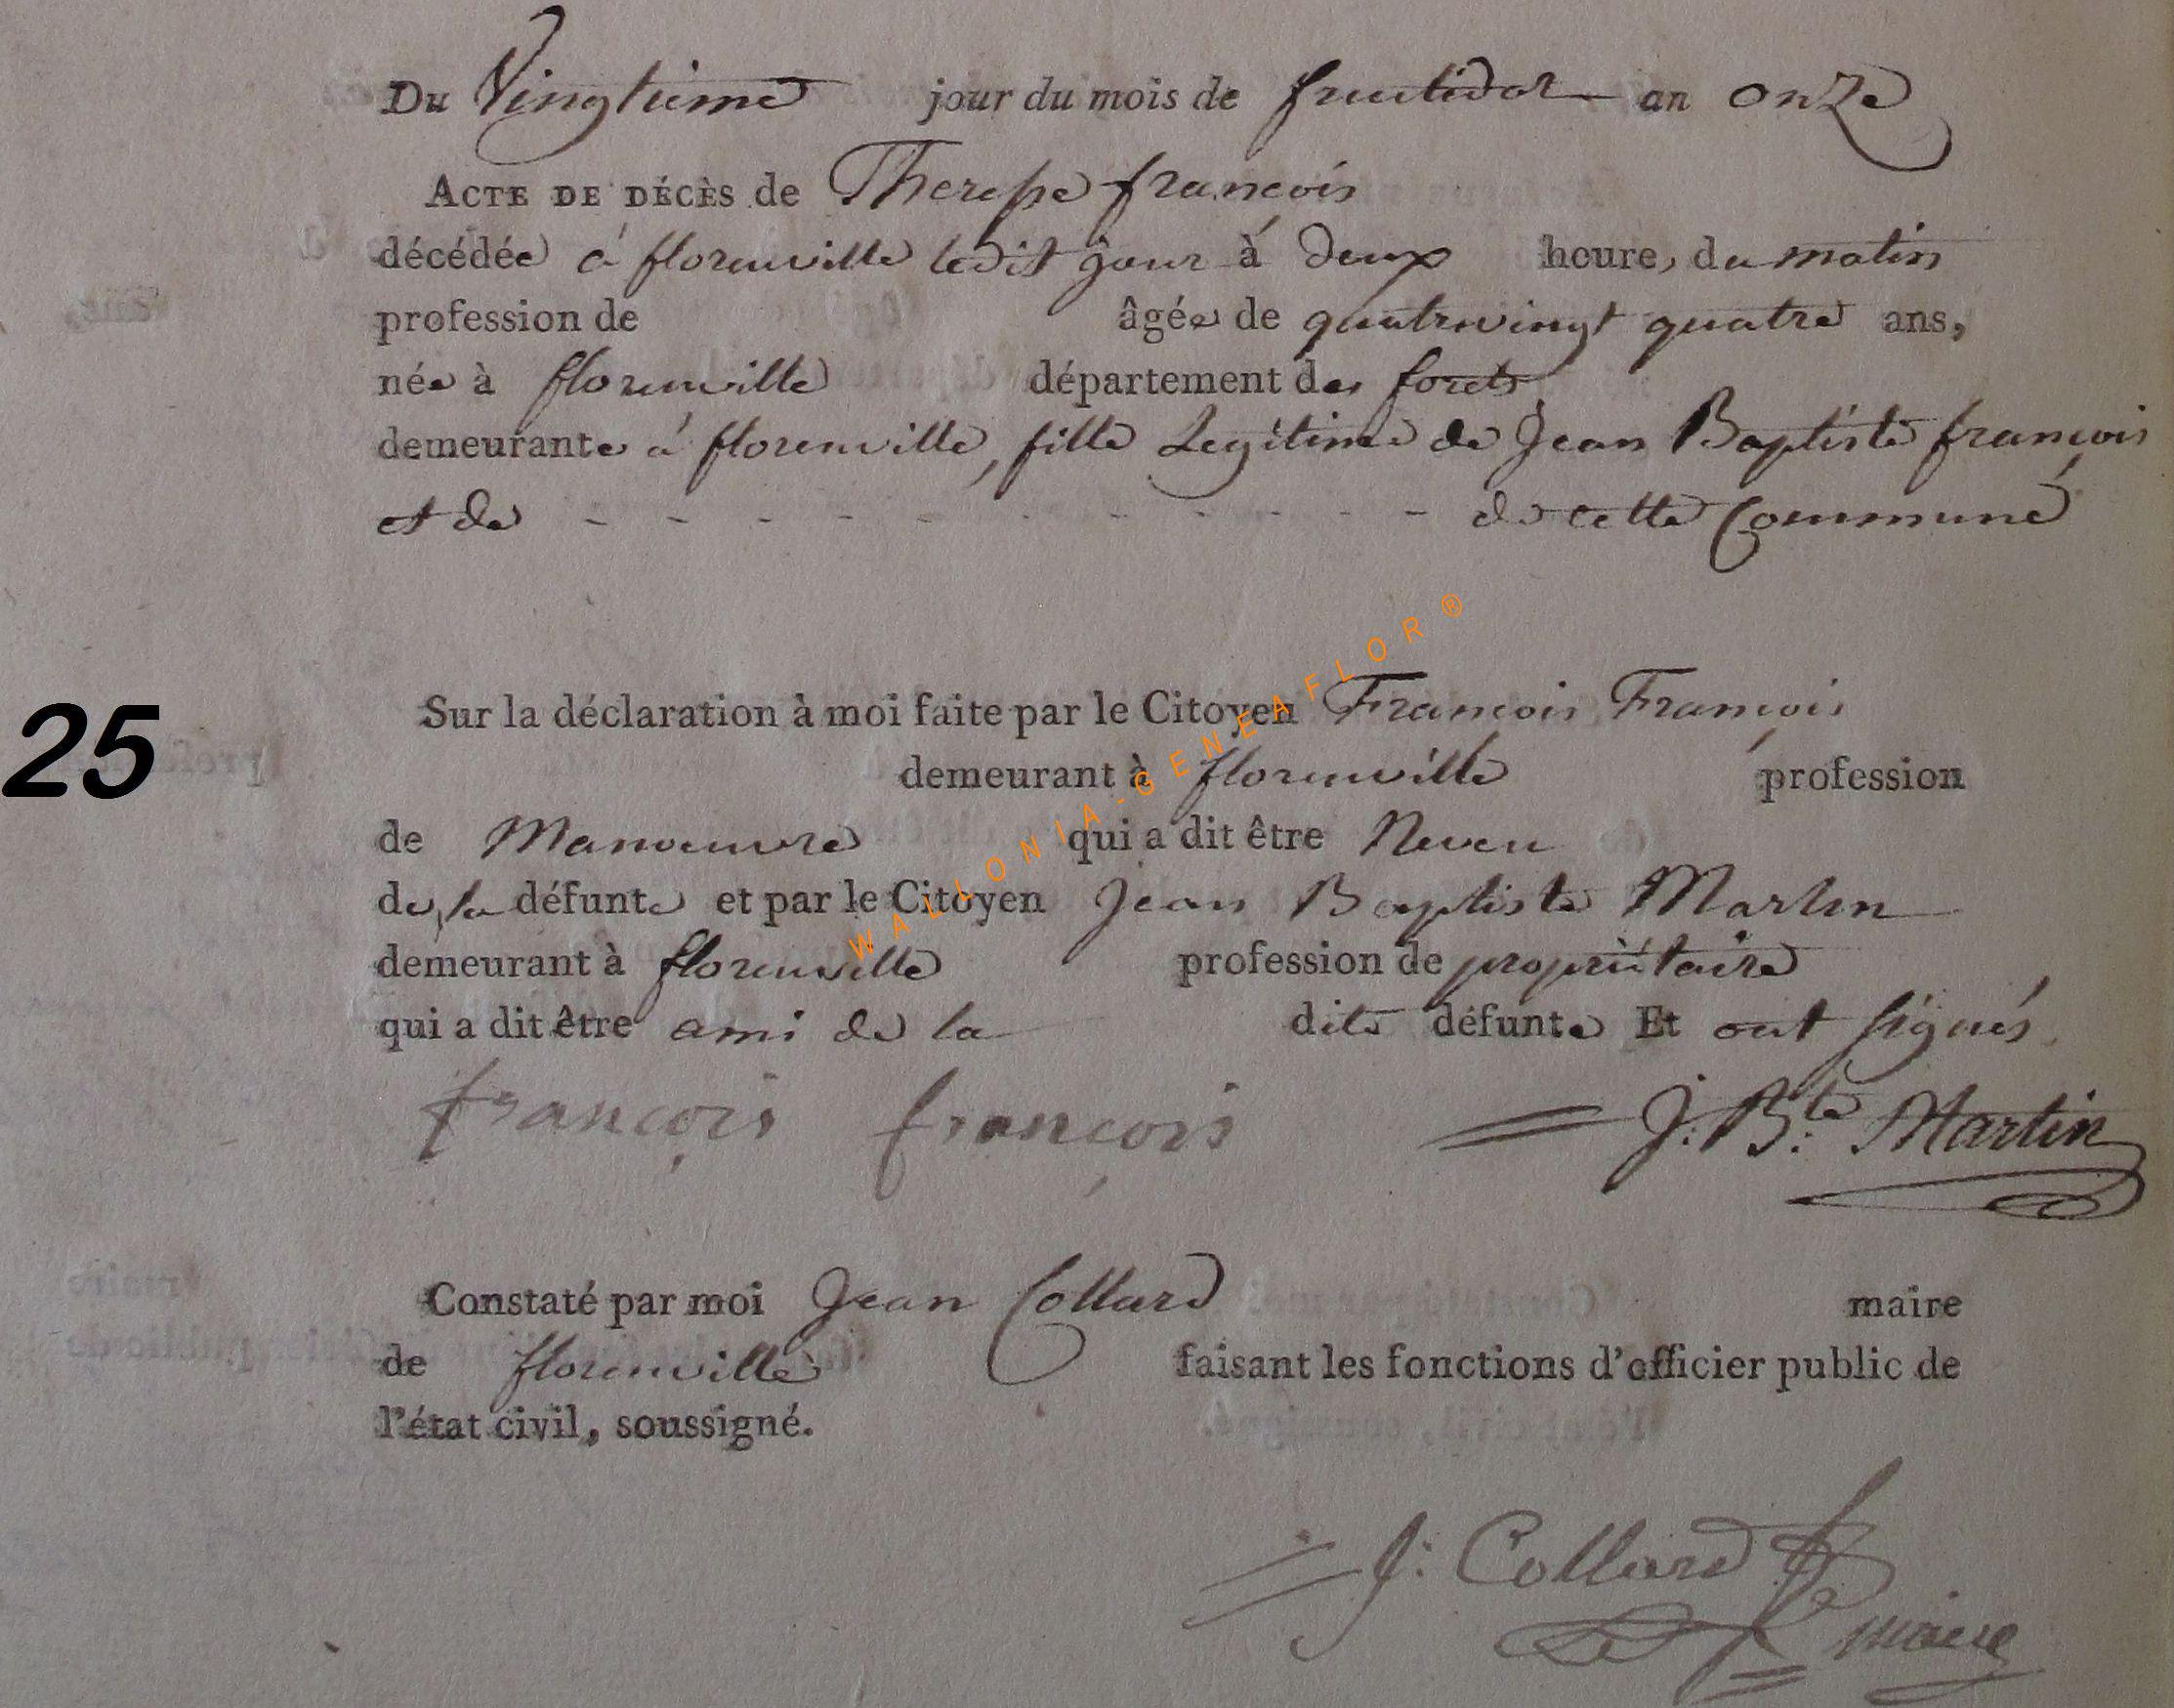 Du Vingtieme jour du mois de fructidor an onze
ACTE DE DÉCÈS de Therese françois
décédée à florenville ledit jour à deux heure, du matin
profession de âgée de quatrevingt quatre ans,
née à florenville département des forets
demeurante à florenville, fille Legitime de Jean Baptiste françois
et de - - - - - - - - - - - de cette Commune
25
Sur la déclaration à moi faite par le Citoyen François François
demeurant à florenville profession
de Manoeuvre qui a dit être Neveu
de la défunte et par le Citoyen Jean Baptiste Martin
demeurant à florenville profession de propriétaire
qui a dit être ami de la dite défunte Et ont signés
françois françois J: B:te Martin
Constaté par moi Jean Collard maire
de florenville faisant les fonctions d'officier public de
l'état civil, soussigné.
J: Collard
maire
WALLONIA-GENEAFLOR®